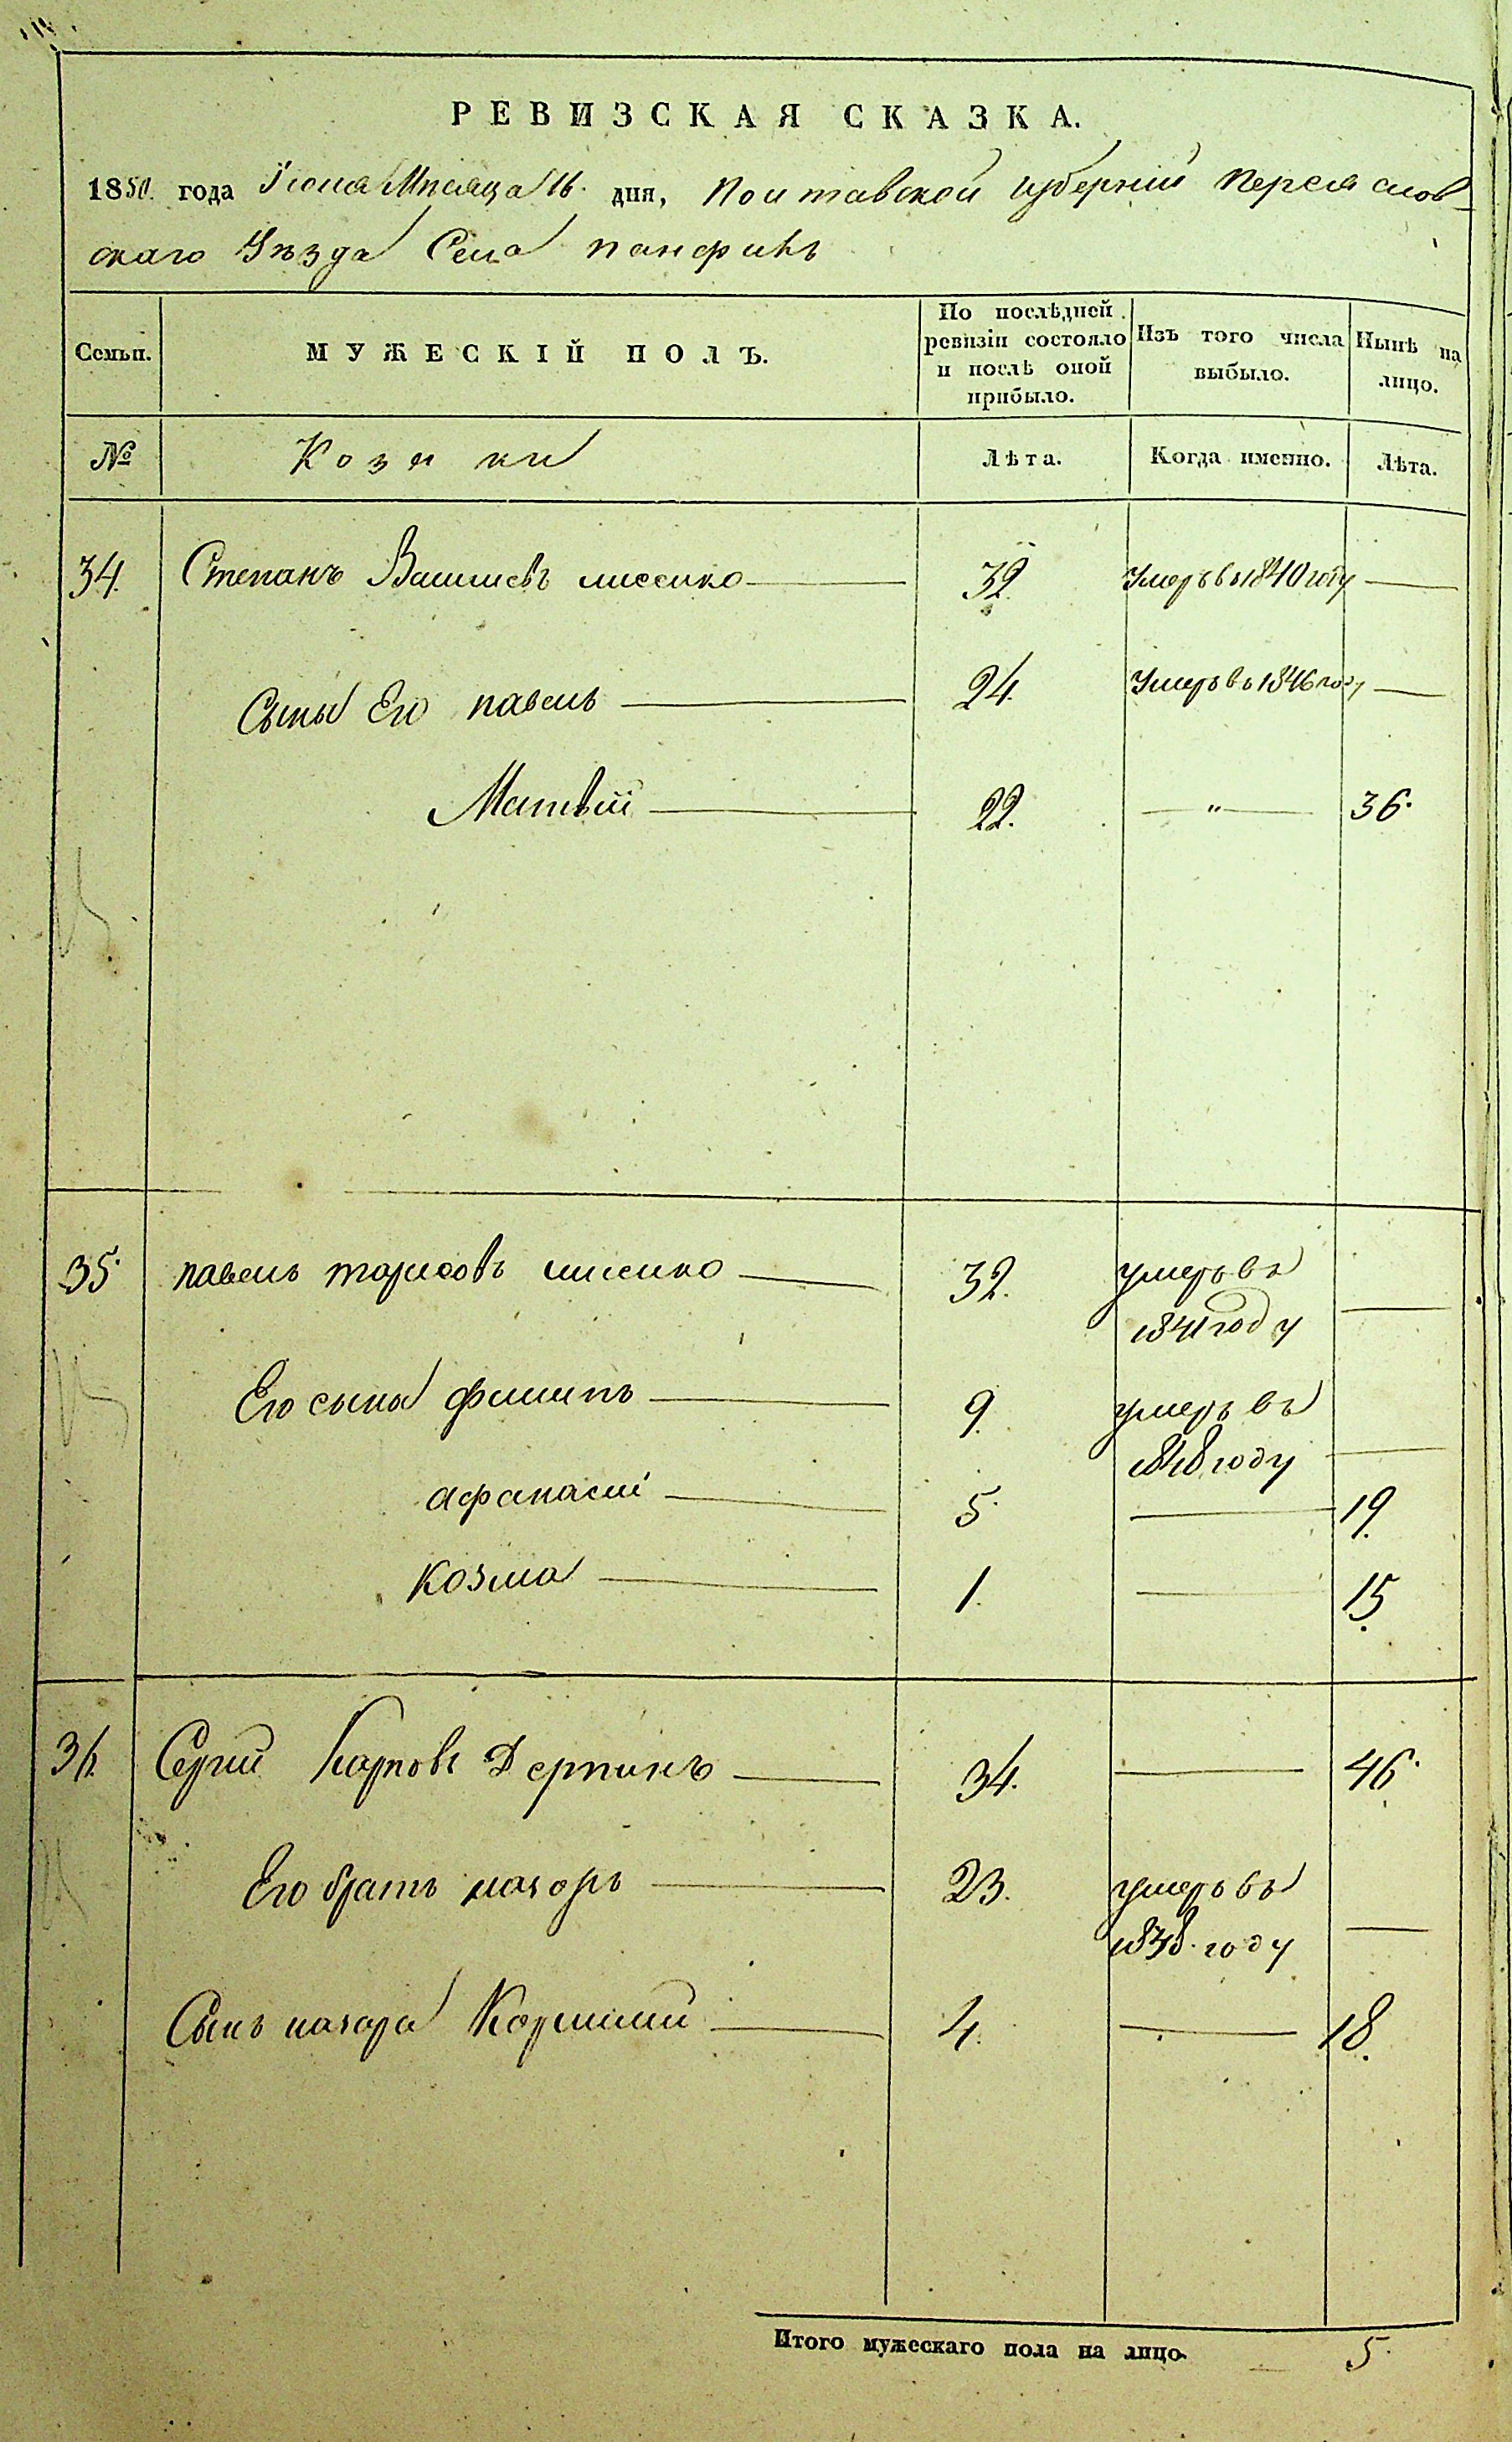 РЕВИЗСКАЯ СКАЗКА.
1850. года Іюня Мѣсяца 16. дня, Полтавской Губерніи Переяслов-
скаго Уѣзда Села Панфилъ
Семьи. МУЖЕСКІЙ ПОЛЪ. По послѣдней ревизіи состояло и послѣ оной прибыло. Изъ того числа выбыло. Нынѣ на лицо.
№ Козаки Лѣта. Когда именно. Лѣта.
34. Степанъ Васильевъ лисенко 32. Умеръ въ 1840 году
Сыны Его павелъ 24. Умеръ въ 1846 году
Матвѣй 22. " 36.
35. павелъ тарасовъ лисенко 32. умеръ въ
1841 году
Его сыны филипъ 9. умеръ въ
1848 году
афанасій 5. 19.
козма 1. 15.
36. Сергій Карповъ Деркачъ 34. 46.
Его братъ назаръ 23. умеръ въ
1838. году
Сынъ назара Корнилий 4. 18.
Итого мужескаго пола на лицо. 5.